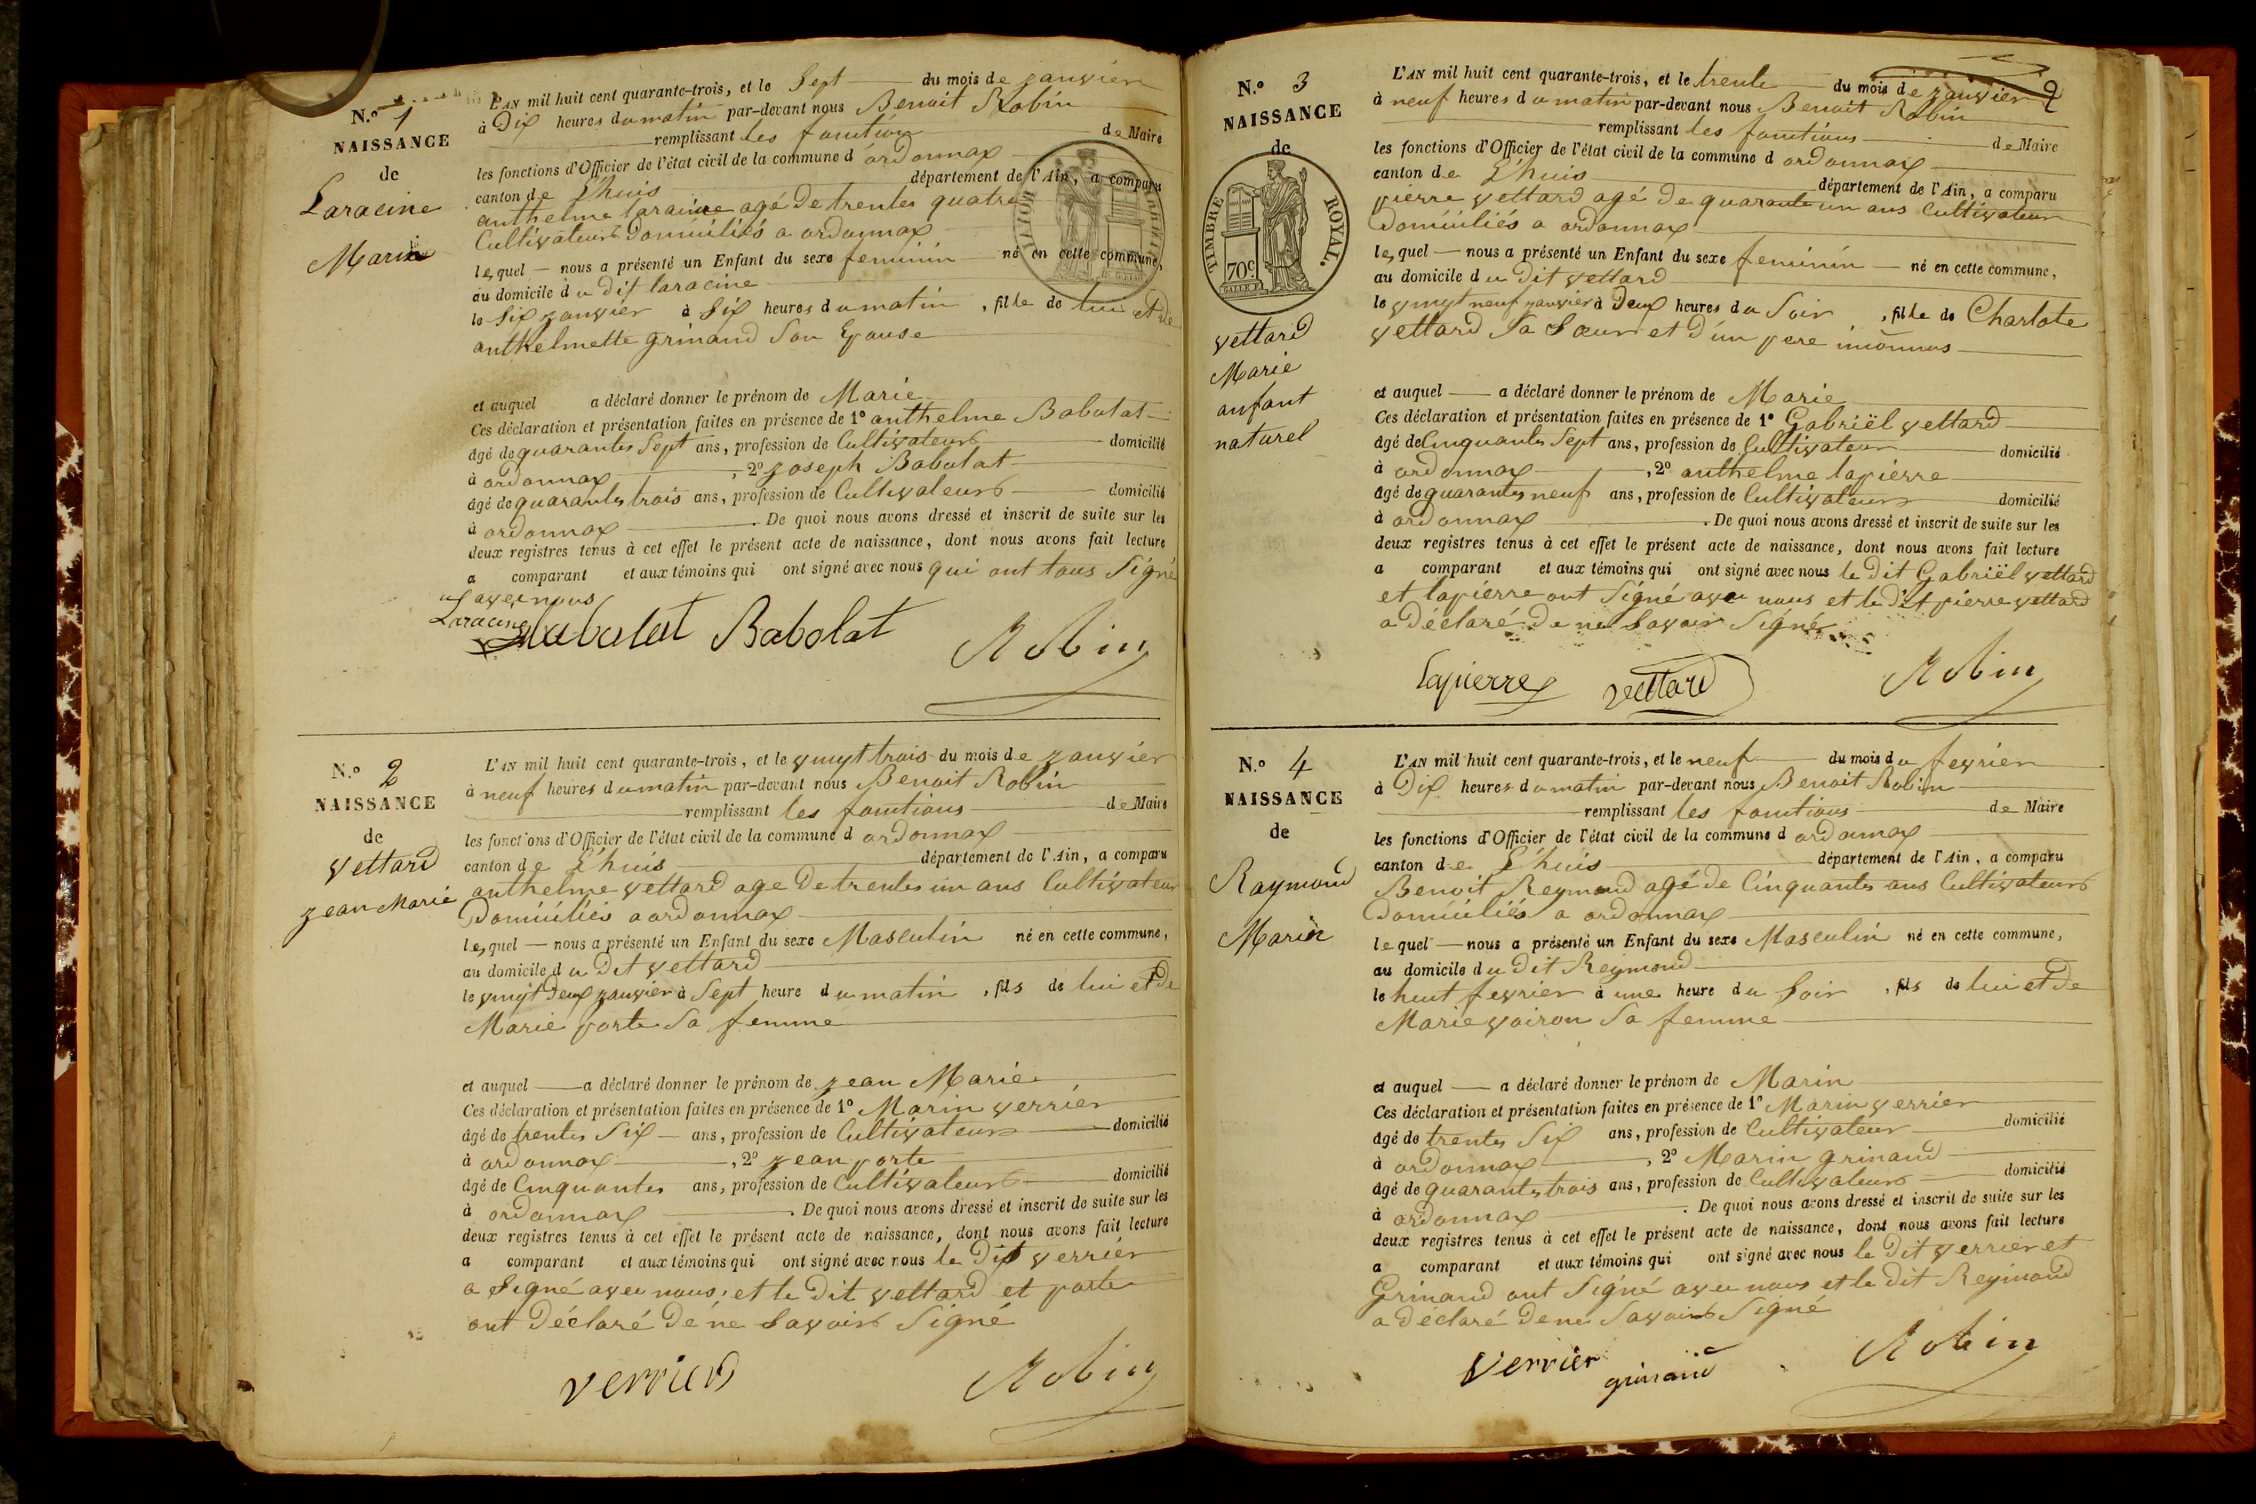 N.º 1
NAISSANCE
de
Laracine
Marie
L'AN mil huit cent quarante-trois, et le Sept du mois de janvier
à Dix heures du matin par-devant nous Benoit Robin
remplissant les fonction de Maire
les fonctions d'Officier de l'état civil de la commune d ordonnax
canton de L'huis département de l'Ain, a comparu
anthelme laracine agé de trentes quatre
Cultivateurs Domiciliés a ordonnax
lequel nous a présenté un Enfant du sexe feminin né en cette commune,
au domicile du dit laracine
le Six janvier à Six heures du matin, fille de lui et de
anthelmette grinand Son Epouse
et auquel a déclaré donner le prénom de Marie
Ces déclaration et présentation faites en présence de 1º anthelme Babolat
âgé de quarantes Sept ans, profession de Cultivateurs domicilié
à ordonnax, 2º joseph Babolat
âgé de quarantes trois ans, profession de Cultivateurs domicilié
à ordonnax. De quoi nous avons dressé et inscrit de suite sur les
deux registres tenus à cet effet le présent acte de naissance, dont nous avons fait lecture
a comparant et aux témoins qui ont signé avec nous qui ont tous Signé
avec nous
Laracine
Babolat Babolat Robin
N.º 2
NAISSANCE
de
Vettard
jean Marie
L'AN mil huit cent quarante-trois, et le vingt trois du mois de janvier
à neuf heures du matin par-devant nous Benoit Robin
remplissant les fonctions de Maire
les fonctions d'Officier de l'état civil de la commune d ordonnax
canton de L'huis département de l'Ain, a comparu
anthelme vettard age de trentes un ans Cultivateur
Domiciliés a ordonnax
lequel nous a présenté un Enfant du sexe Masculin né en cette commune,
au domicile du Dit vettard
le vingt Deux janvier à Sept heure du matin, fils de lui et de
Marie porte Sa femme
et auquel a déclaré donner le prénom de jean Marie
Ces déclaration et présentation faites en présence de 1º Marin verrier
âgé de trentes Six ans, profession de Cultivateurs domicilié
à ordonnax, 2º jean porte
âgé de Cinquantes ans, profession de Cultivateurs domicilié
à ordonnax. De quoi nous avons dressé et inscrit de suite sur les
deux registres tenus à cet effet le présent acte de naissance, dont nous avons fait lecture
a comparant et aux témoins qui ont signé avec nous le Dit verrier
a Signé avec nous, et le Dit vettard et porte
ont Déclaré De ne Savoirs Signé
verrier Robin
2
N.º 3
NAISSANCE
de
TIMBRE ROYAL.
70c
vettard
Marie
anfant
naturel
L'AN mil huit cent quarante-trois, et le trente du mois de janvier
à neuf heures du matin par-devant nous Benoit Robin
remplissant les fonctions de Maire
les fonctions d'Officier de l'état civil de la commune d ordonnax
canton de L'huis département de l'Ain, a comparu
pierre vettard agé De quarante un ans Cultivateur
Domiciliés a ordonnax
lequel nous a présenté un Enfant du sexe feminin né en cette commune,
au domicile du Dit vettard
le vingt neuf janvier à Deux heures du Soir, fille de Charlote
vettard Sa Sœur et D'un pere inconnus
et auquel a déclaré donner le prénom de Marie
Ces déclaration et présentation faites en présence de 1º Gabriël vettard
âgé de Cinquantes Sept ans, profession de Cultivateur domicilié
à ordonnax, 2º anthelme lapierre
âgé de quarantes neuf ans, profession de Cultivateurs domicilié
à ordonnax. De quoi nous avons dressé et inscrit de suite sur les
deux registres tenus à cet effet le présent acte de naissance, dont nous avons fait lecture
a comparant et aux témoins qui ont signé avec nous le dit Gabriël vettard
et lapierre ont Signé avec nous et le Dit pierre vettard
a Déclaré De ne Savoir Signer
Lapierre vettard Robin
N.º 4
NAISSANCE
de
Raymond
Marin
L'AN mil huit cent quarante-trois, et le neuf du mois du fevrier
à Dix heures du matin par-devant nous Benoit Robin
remplissant les fonctions de Maire
les fonctions d'Officier de l'état civil de la commune d ordonnax
canton de L'huis département de l'Ain, a comparu
Benoit Reymond agé de Cinquantes ans Cultivateurs
Domiciliés a ordonnax
lequel nous a présenté un Enfant du sexe Masculin né en cette commune,
au domicile du dit Reymond
le huit fevrier à une heure du Soir, fils de lui et De
Marie voiron Sa femme
et auquel a déclaré donner le prénom de Marin
Ces déclaration et présentation faites en présence de 1º Marin verrier
âgé de trentes Six ans, profession de Cultivateur domicilié
à ordonnax, 2º Marin grinand
âgé de quarantes trois ans, profession de Cultivateurs domicilié
à ordonnax. De quoi nous avons dressé et inscrit de suite sur les
deux registres tenus à cet effet le présent acte de naissance, dont nous avons fait lecture
a comparant et aux témoins qui ont signé avec nous le dit verrier et
Grinand ont Signé avec nous et le dit Reymond
a déclaré De ne Savoirs Signé
verrier grinand Robin